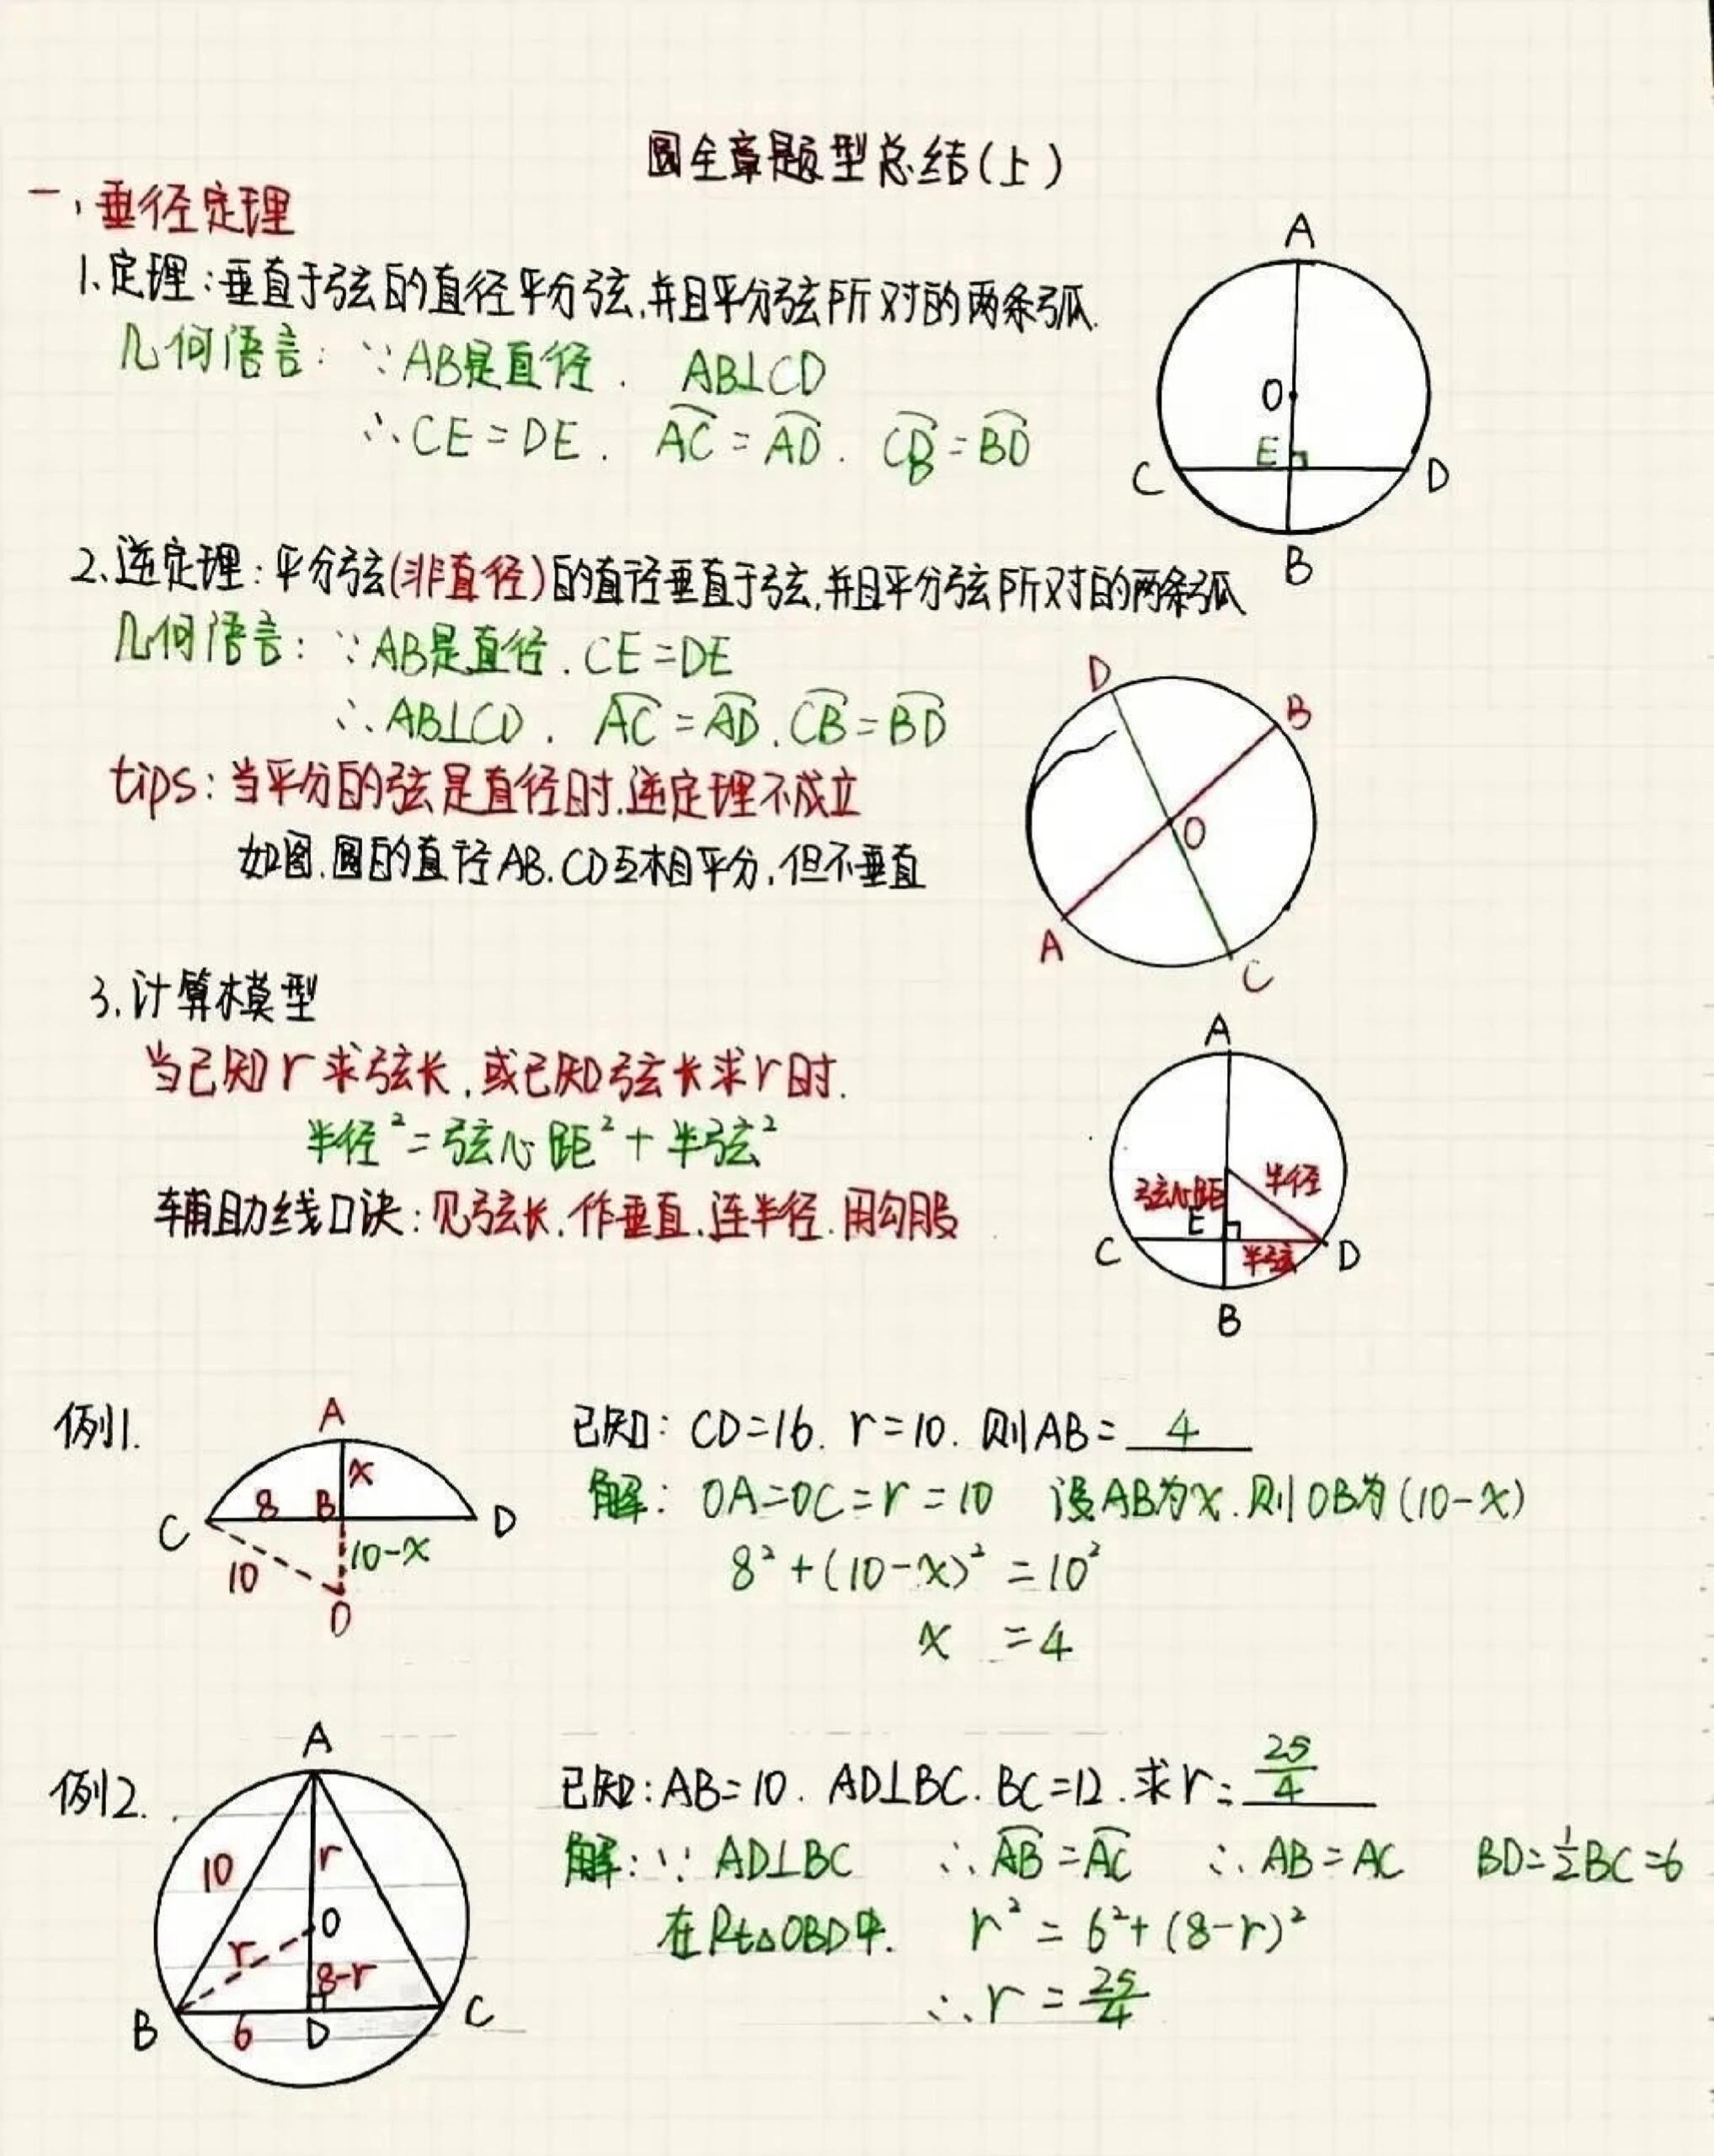 圆全章题型总结(上)
一、垂径定理
1.定理:垂直于弦的直径平分弦,并且平分弦所对的两条弧.
几何语言: ∵AB是直径. AB⊥CD
∴CE=DE. ⌒AC=⌒AD. ⌒CB=⌒BD
A
O
E
C
D
B
2.逆定理:平分弦(非直径)的直径垂直于弦,并且平分弦所对的两条弧
几何语言: ∵AB是直径.CE=DE
∴AB⊥CD. ⌒AC=⌒AD.⌒CB=⌒BD
tips:当平分的弦是直径时.逆定理不成立
如图.圆的直径AB.CD互相平分,但不垂直
D
B
O
A
C
3.计算模型
当已知r求弦长,或已知弦长求r时.
半径²=弦心距²+半弦²
辅助线口诀:见弦长,作垂直.连半径.用勾股
A
弦心距
半径
E
C
半弦
D
B
例1.
A
x
8
B
C
D
10
10-x
O
已知: CD=16. r=10. 则AB= 4
解: OA=OC=r=10 设AB为x.则OB为(10-x)
8²+(10-x)²=10²
x =4
例2.
A
10
r
O
r
8-r
B
6
D
C
已知:AB=10. AD⊥BC.BC=12.求r= 25/4
解:∵AD⊥BC ∴⌒AB=⌒AC ∴AB=AC BD=1/2BC=6
在Rt△OBD中. r²=6²+(8-r)²
∴r=25/4